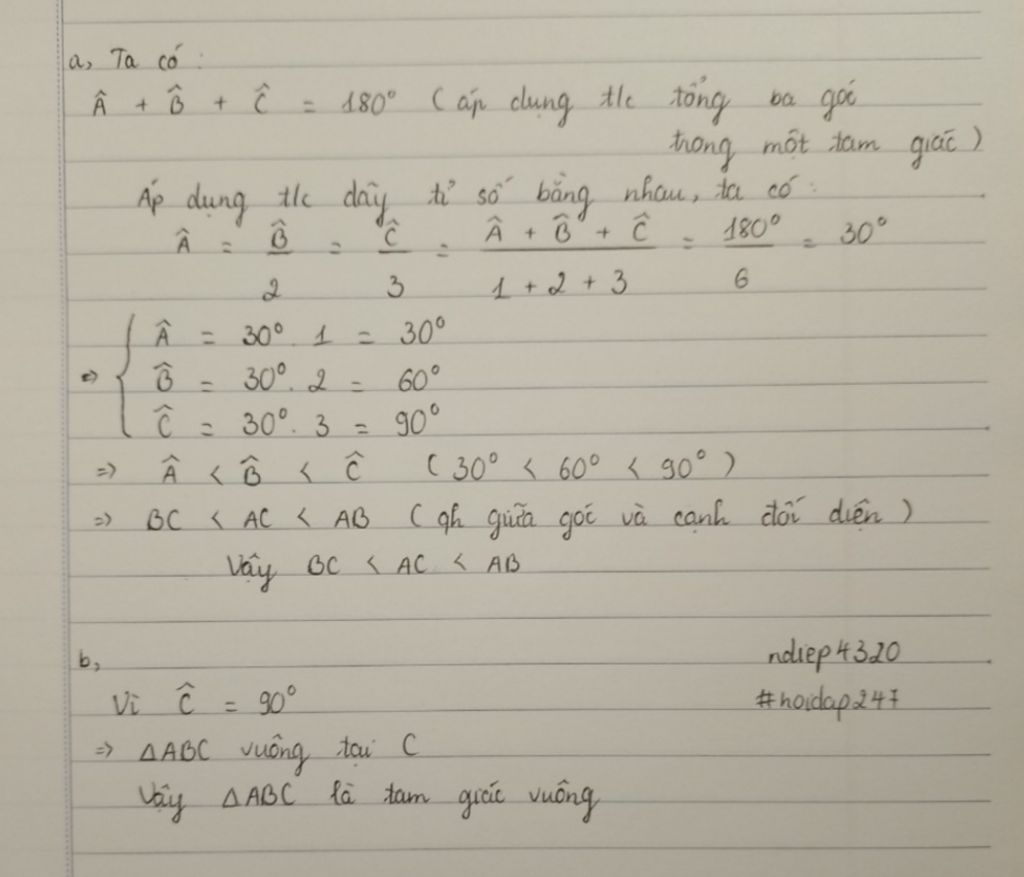 a, Ta có :
Â + B̂ + Ĉ = 180° ( áp dụng t/c tổng ba góc
trong một tam giác )
Áp dụng t/c dãy tỉ số bằng nhau, ta có :
Â = B̂/2 = Ĉ/3 = (Â + B̂ + Ĉ)/(1 + 2 + 3) = 180°/6 = 30°
⇒ { Â = 30° . 1 = 30°
B̂ = 30° . 2 = 60°
Ĉ = 30° . 3 = 90°
⇒ Â < B̂ < Ĉ ( 30° < 60° < 90° )
⇒ BC < AC < AB ( qh giữa góc và cạnh đối diện )
Vậy BC < AC < AB
b,
ndiep4320
Vì Ĉ = 90°
#hoidap247
⇒ ΔABC vuông tại C
Vậy ΔABC là tam giác vuông